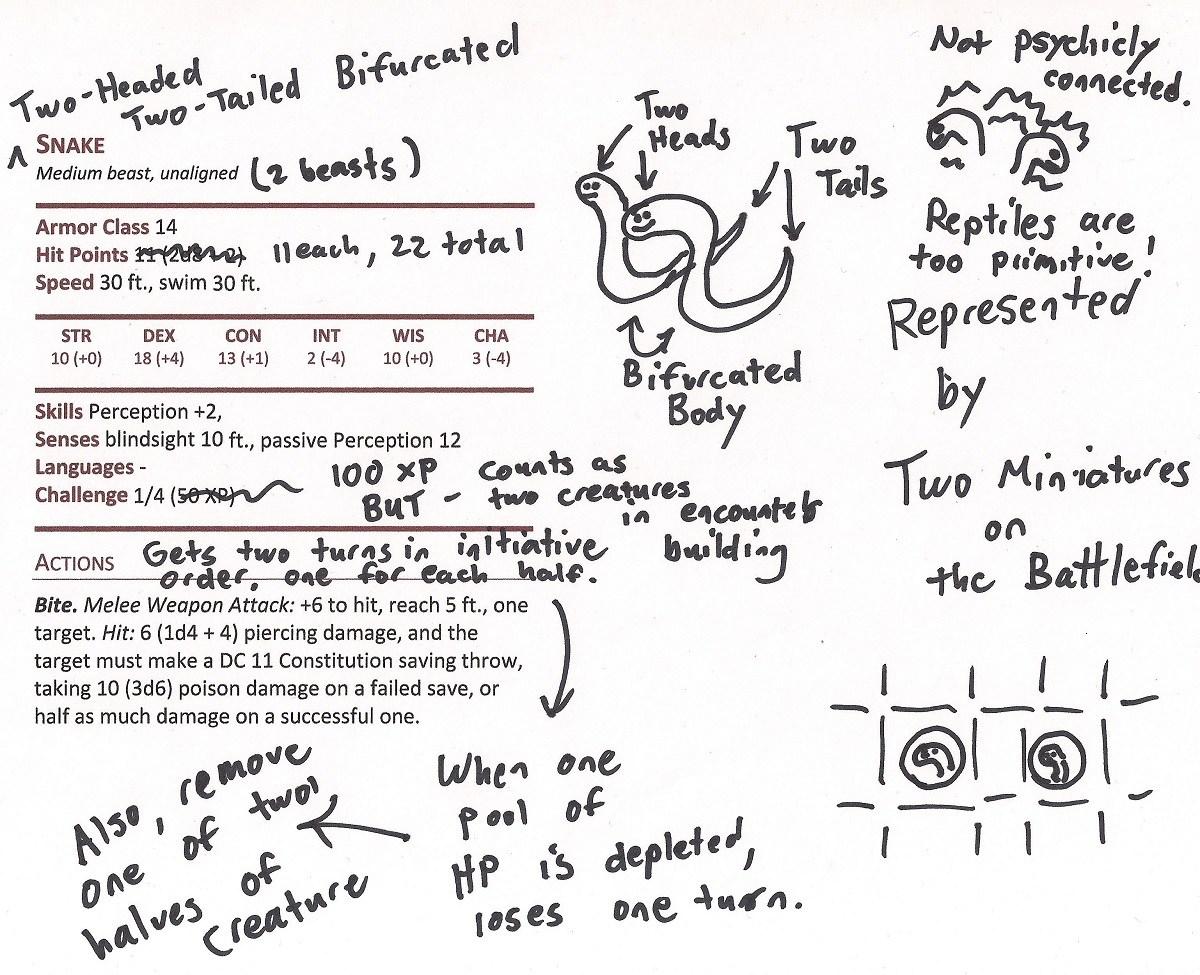 Two-Headed
Two-Tailed Bifurcated
^ SNAKE
Medium beast, unaligned (2 beasts)
Armor Class 14
Hit Points 11 (2d8 + 2) 11 each, 22 total
Speed 30 ft., swim 30 ft.
STR DEX CON INT WIS CHA
10 (+0) 18 (+4) 13 (+1) 2 (-4) 10 (+0) 3 (-4)
Skills Perception +2,
Senses blindsight 10 ft., passive Perception 12
Languages -
Challenge 1/4 (50 XP)
100 XP counts as
BUT - two creatures
in encounter
building
ACTIONS
Gets two turns in initiative
order, one for each half.
Bite. Melee Weapon Attack: +6 to hit, reach 5 ft., one
target. Hit: 6 (1d4 + 4) piercing damage, and the
target must make a DC 11 Constitution saving throw,
taking 10 (3d6) poison damage on a failed save, or
half as much damage on a successful one.
When one
pool of
HP is depleted,
loses one turn.
Also, remove
one of two
halves of
creature
Two
Heads
Two
Tails
Bifurcated
Body
Not psychicly
connected.
Reptiles are
too primitive!
Represented
by
Two Miniatures
on
the Battlefield